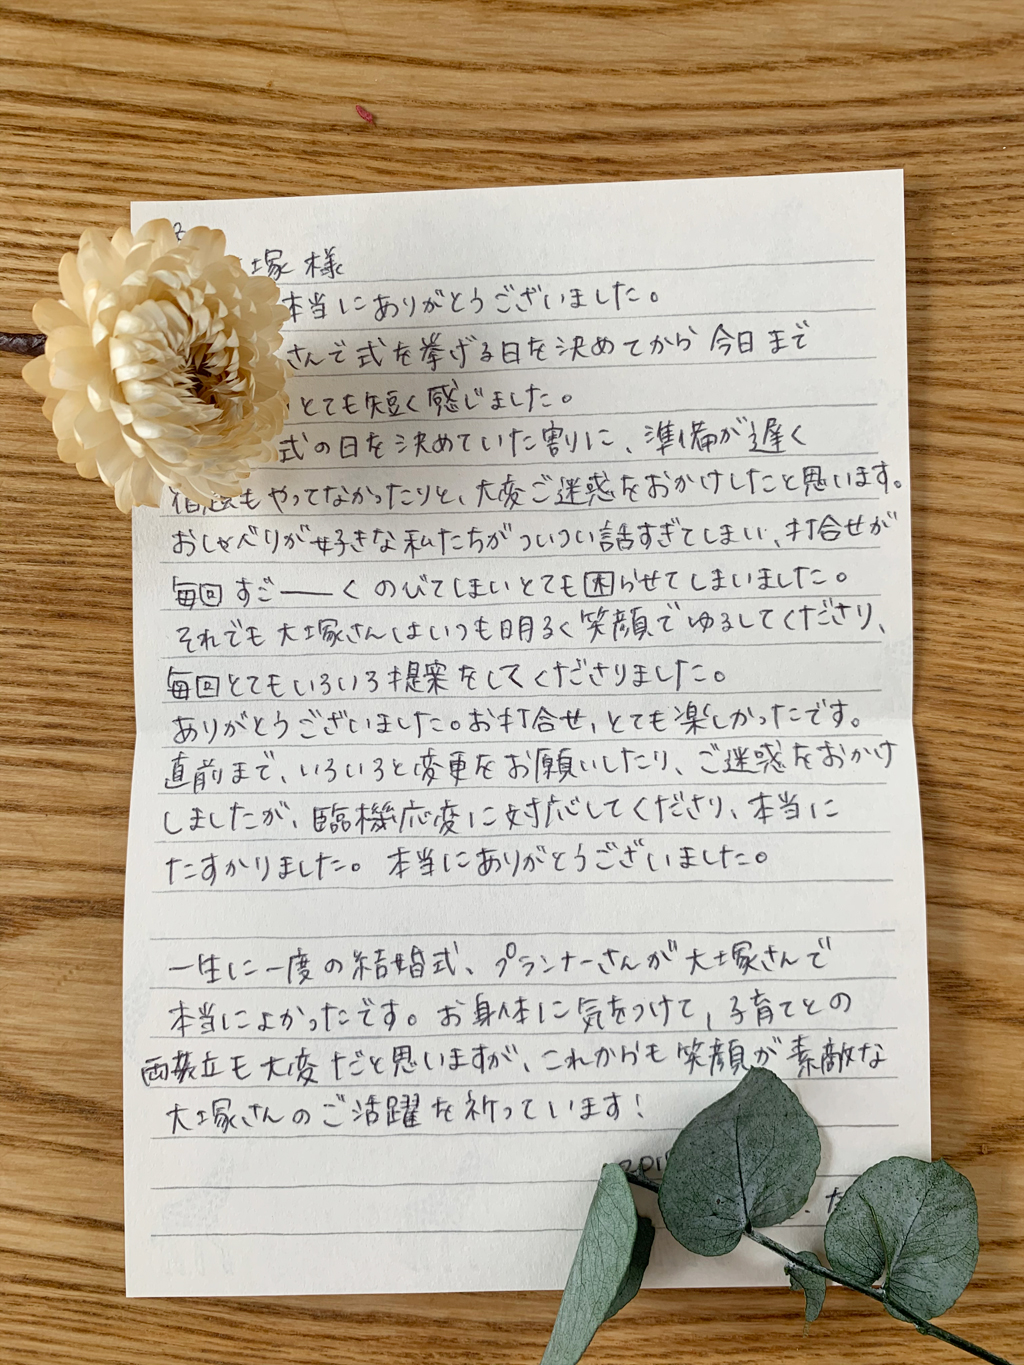 塚 様
本当にありがとうございました。
さんで式を挙げる日を決めてから 今日まで
とても短く感じました。
式の日を決めていた割に、準備が遅く
宿題もやってなかったりと、大変ご迷惑をおかけしたと思います。
おしゃべりが好きな私たちがついつい話すぎてしまい、打合せが
毎回 すごーーく のびてしまいとても困らせてしまいました。
それでも 大塚さんはいつも明るく笑顔でゆるしてくださり、
毎回とてもいろいろ提案をしてくださりました。
ありがとうございました。お打合せ、とても楽しかったです。
直前まで、いろいろと変更をお願いしたり、ご迷惑をおかけ
しましたが、臨機応変に対応してくださり、本当に
たすかりました。 本当にありがとうございました。
一生に一度の結婚式、プランナーさんが大塚さんで
本当によかったです。お身体に気をつけて、子育てとの
両立も大変だと思いますが、これからも笑顔が素敵な
大塚さんのご活躍を祈っています!
201